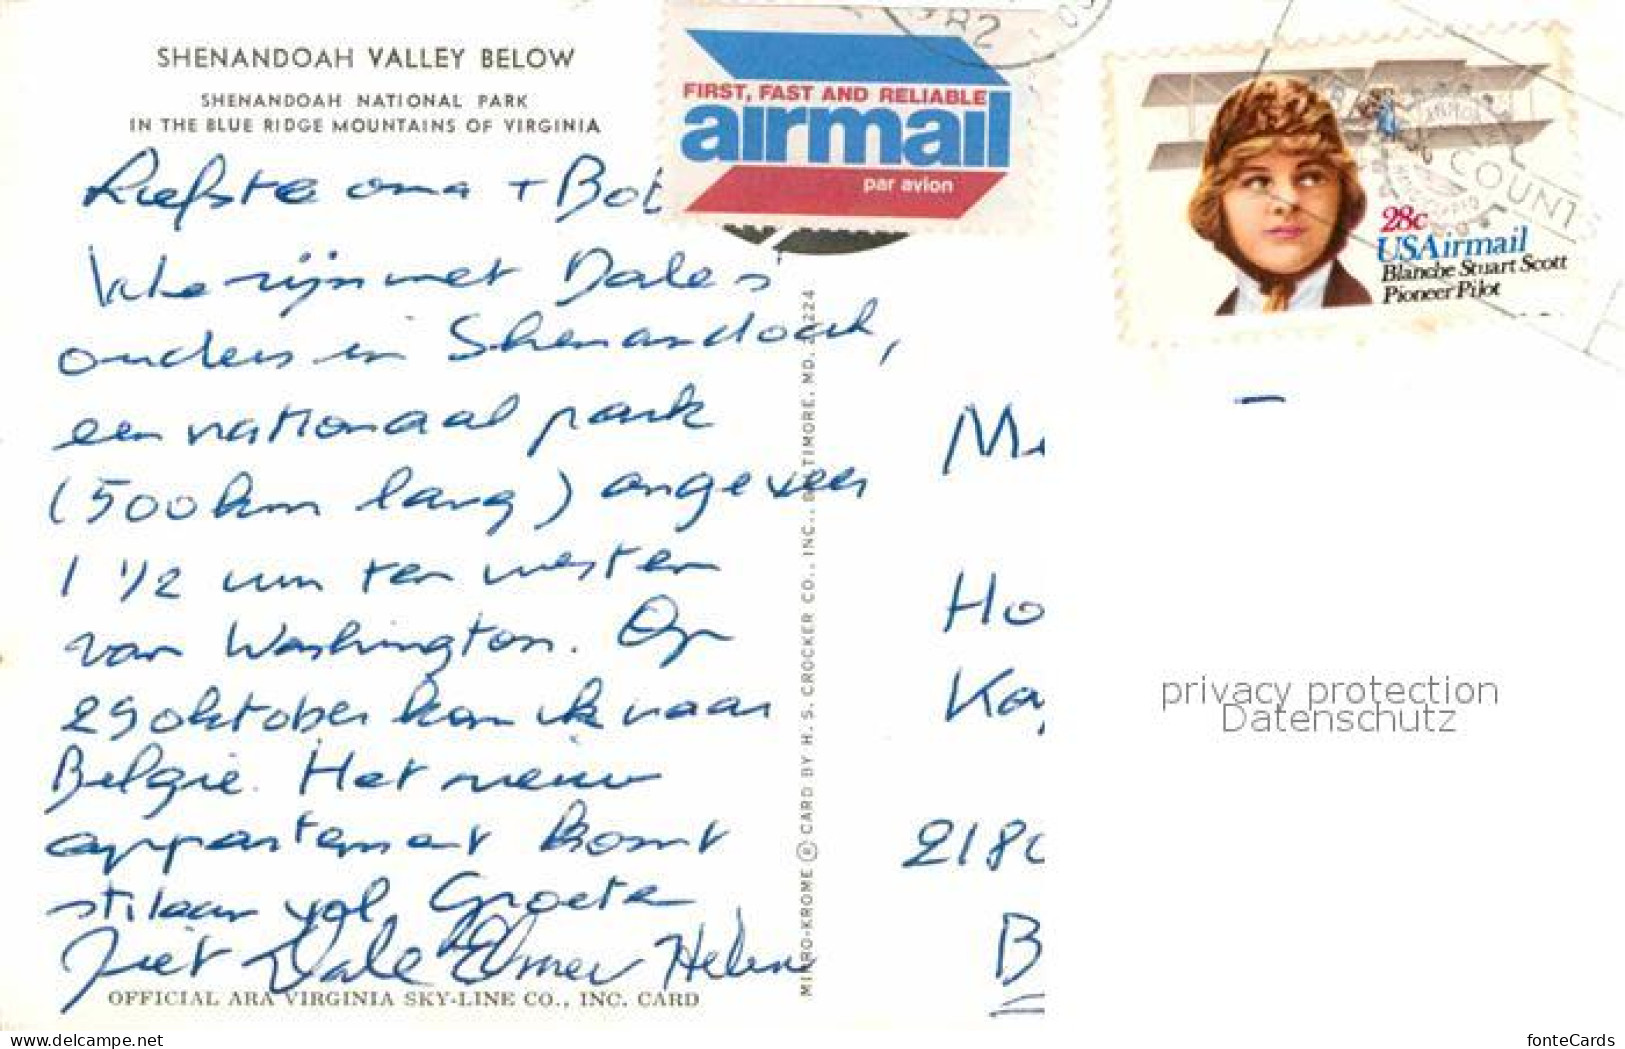 SHENANDOAH VALLEY BELOW
SHENANDOAH NATIONAL PARK
IN THE BLUE RIDGE MOUNTAINS OF VIRGINIA
Liefste oma + Bob
We zijn met Dale's
ouders in Shenandoah,
een nationaal park
(500 km lang) ongeveer
1 1/2 uur ten westen
van Washington. Op
29 oktober kom ik naar
Belgie. Het nieuw
appartement komt
stilaan vol. Groeten
Jiet Dale Elmer Helen
OFFICIAL ARA VIRGINIA SKY-LINE CO., INC. CARD
MIRRO-KROME ® CARD BY H. S. CROCKER CO., INC., BALTIMORE, MD. 21224
FIRST, FAST AND RELIABLE
airmail
par avion
28c
USAirmail
Blanche Stuart Scott
Pioneer Pilot
COUNTS
Ho
Ka
218
B
privacy protection
Datenschutz
www.delcampe.net
fonteCards